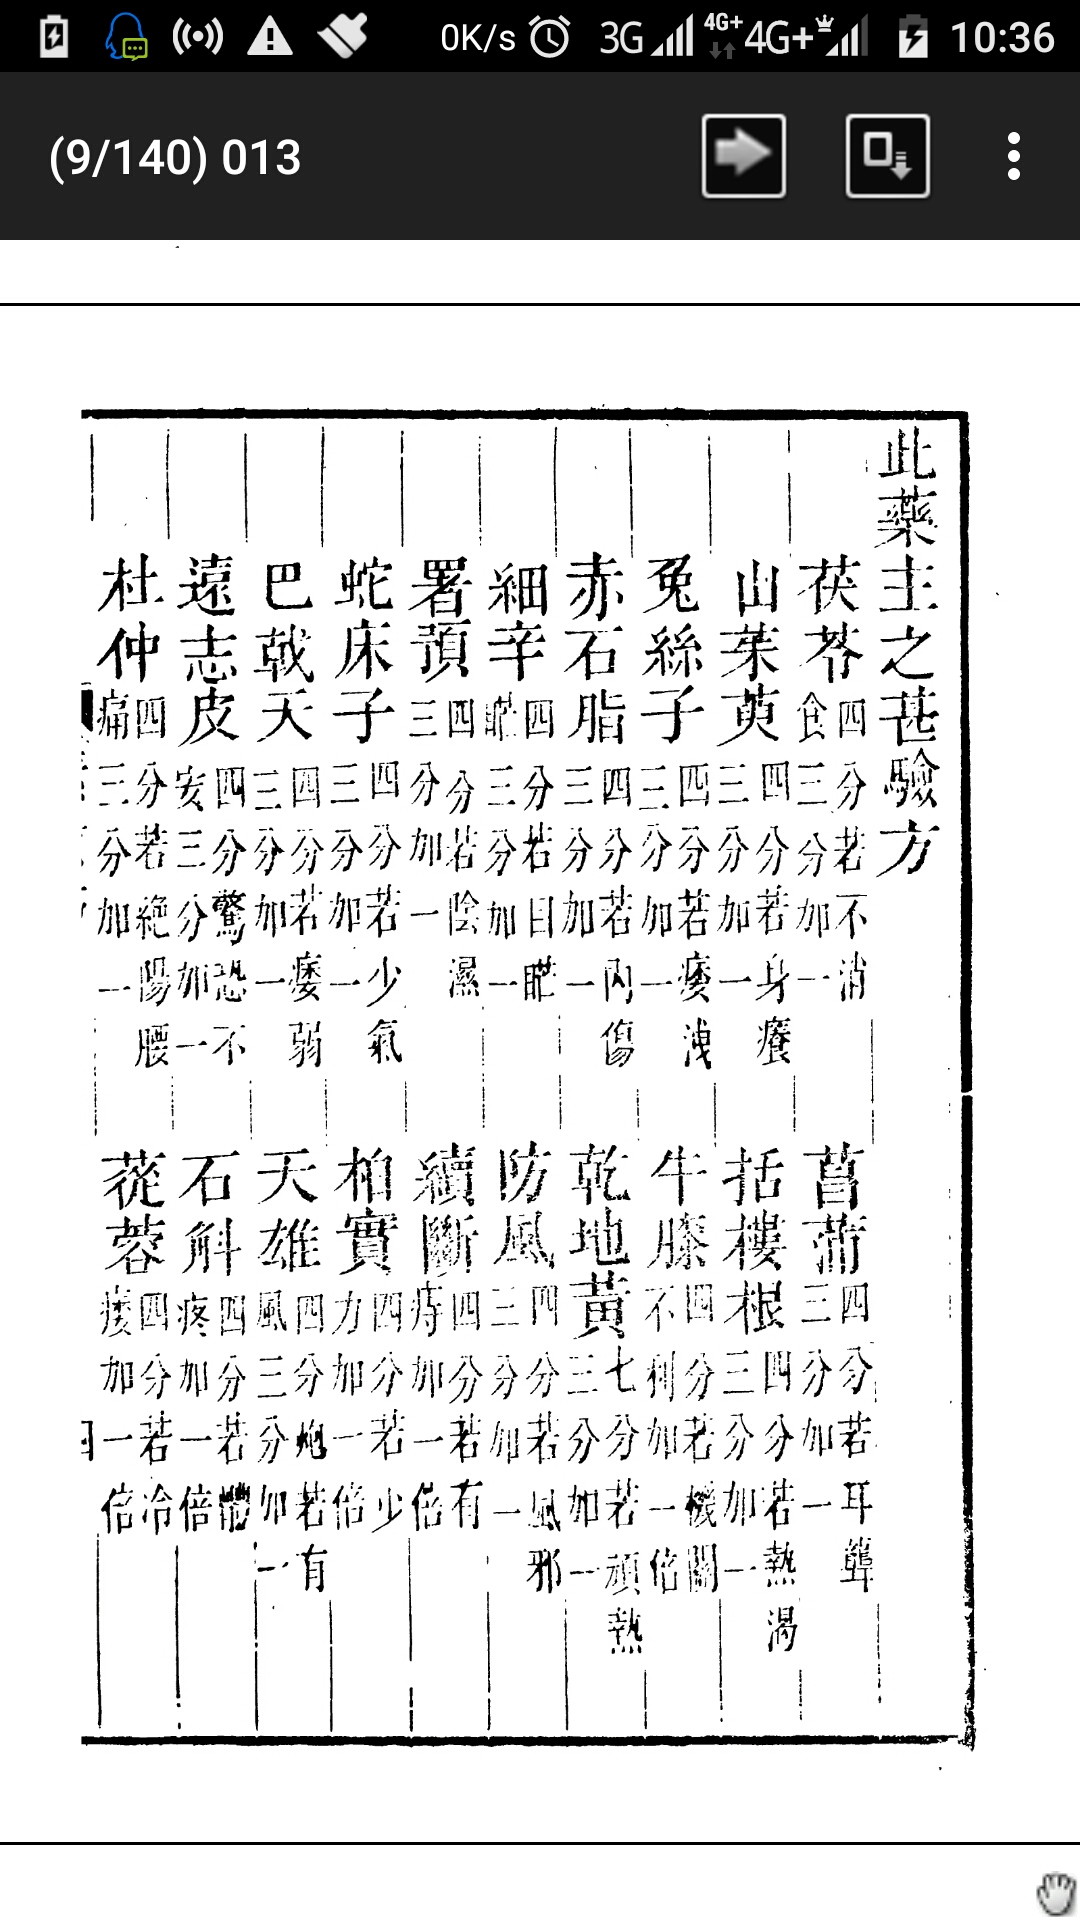 0K/s 3G 4G+ 4G+ 10:36
(9/140) 013
此藥主之甚驗方
茯苓四分若不消食三分加一
菖蒲四分若耳聾三分加一
山茱萸四分若身癢三分加一
括樓根四分若熱渴三分加一
兔絲子四分若痿洩三分加一
牛膝四分若機關不利加一倍
赤石脂四分若內傷三分加一
乾地黃七分若煩熱三分加一
細辛四分若目䀮䀮三分加一
防風四分若風邪三分加一
署預四分若陰濕三分加一
續斷四分若有痔加一倍
蛇床子四分若少氣三分加一
柏實四分若少力加一倍
巴戟天四分若痿弱三分加一
天雄四分炮若有風三分加一
遠志皮四分驚恐不安三分加一
石斛四分若體疼加一倍
杜仲四分若絶陽腰痛三分加一
蓯蓉四分若冷痿加一倍